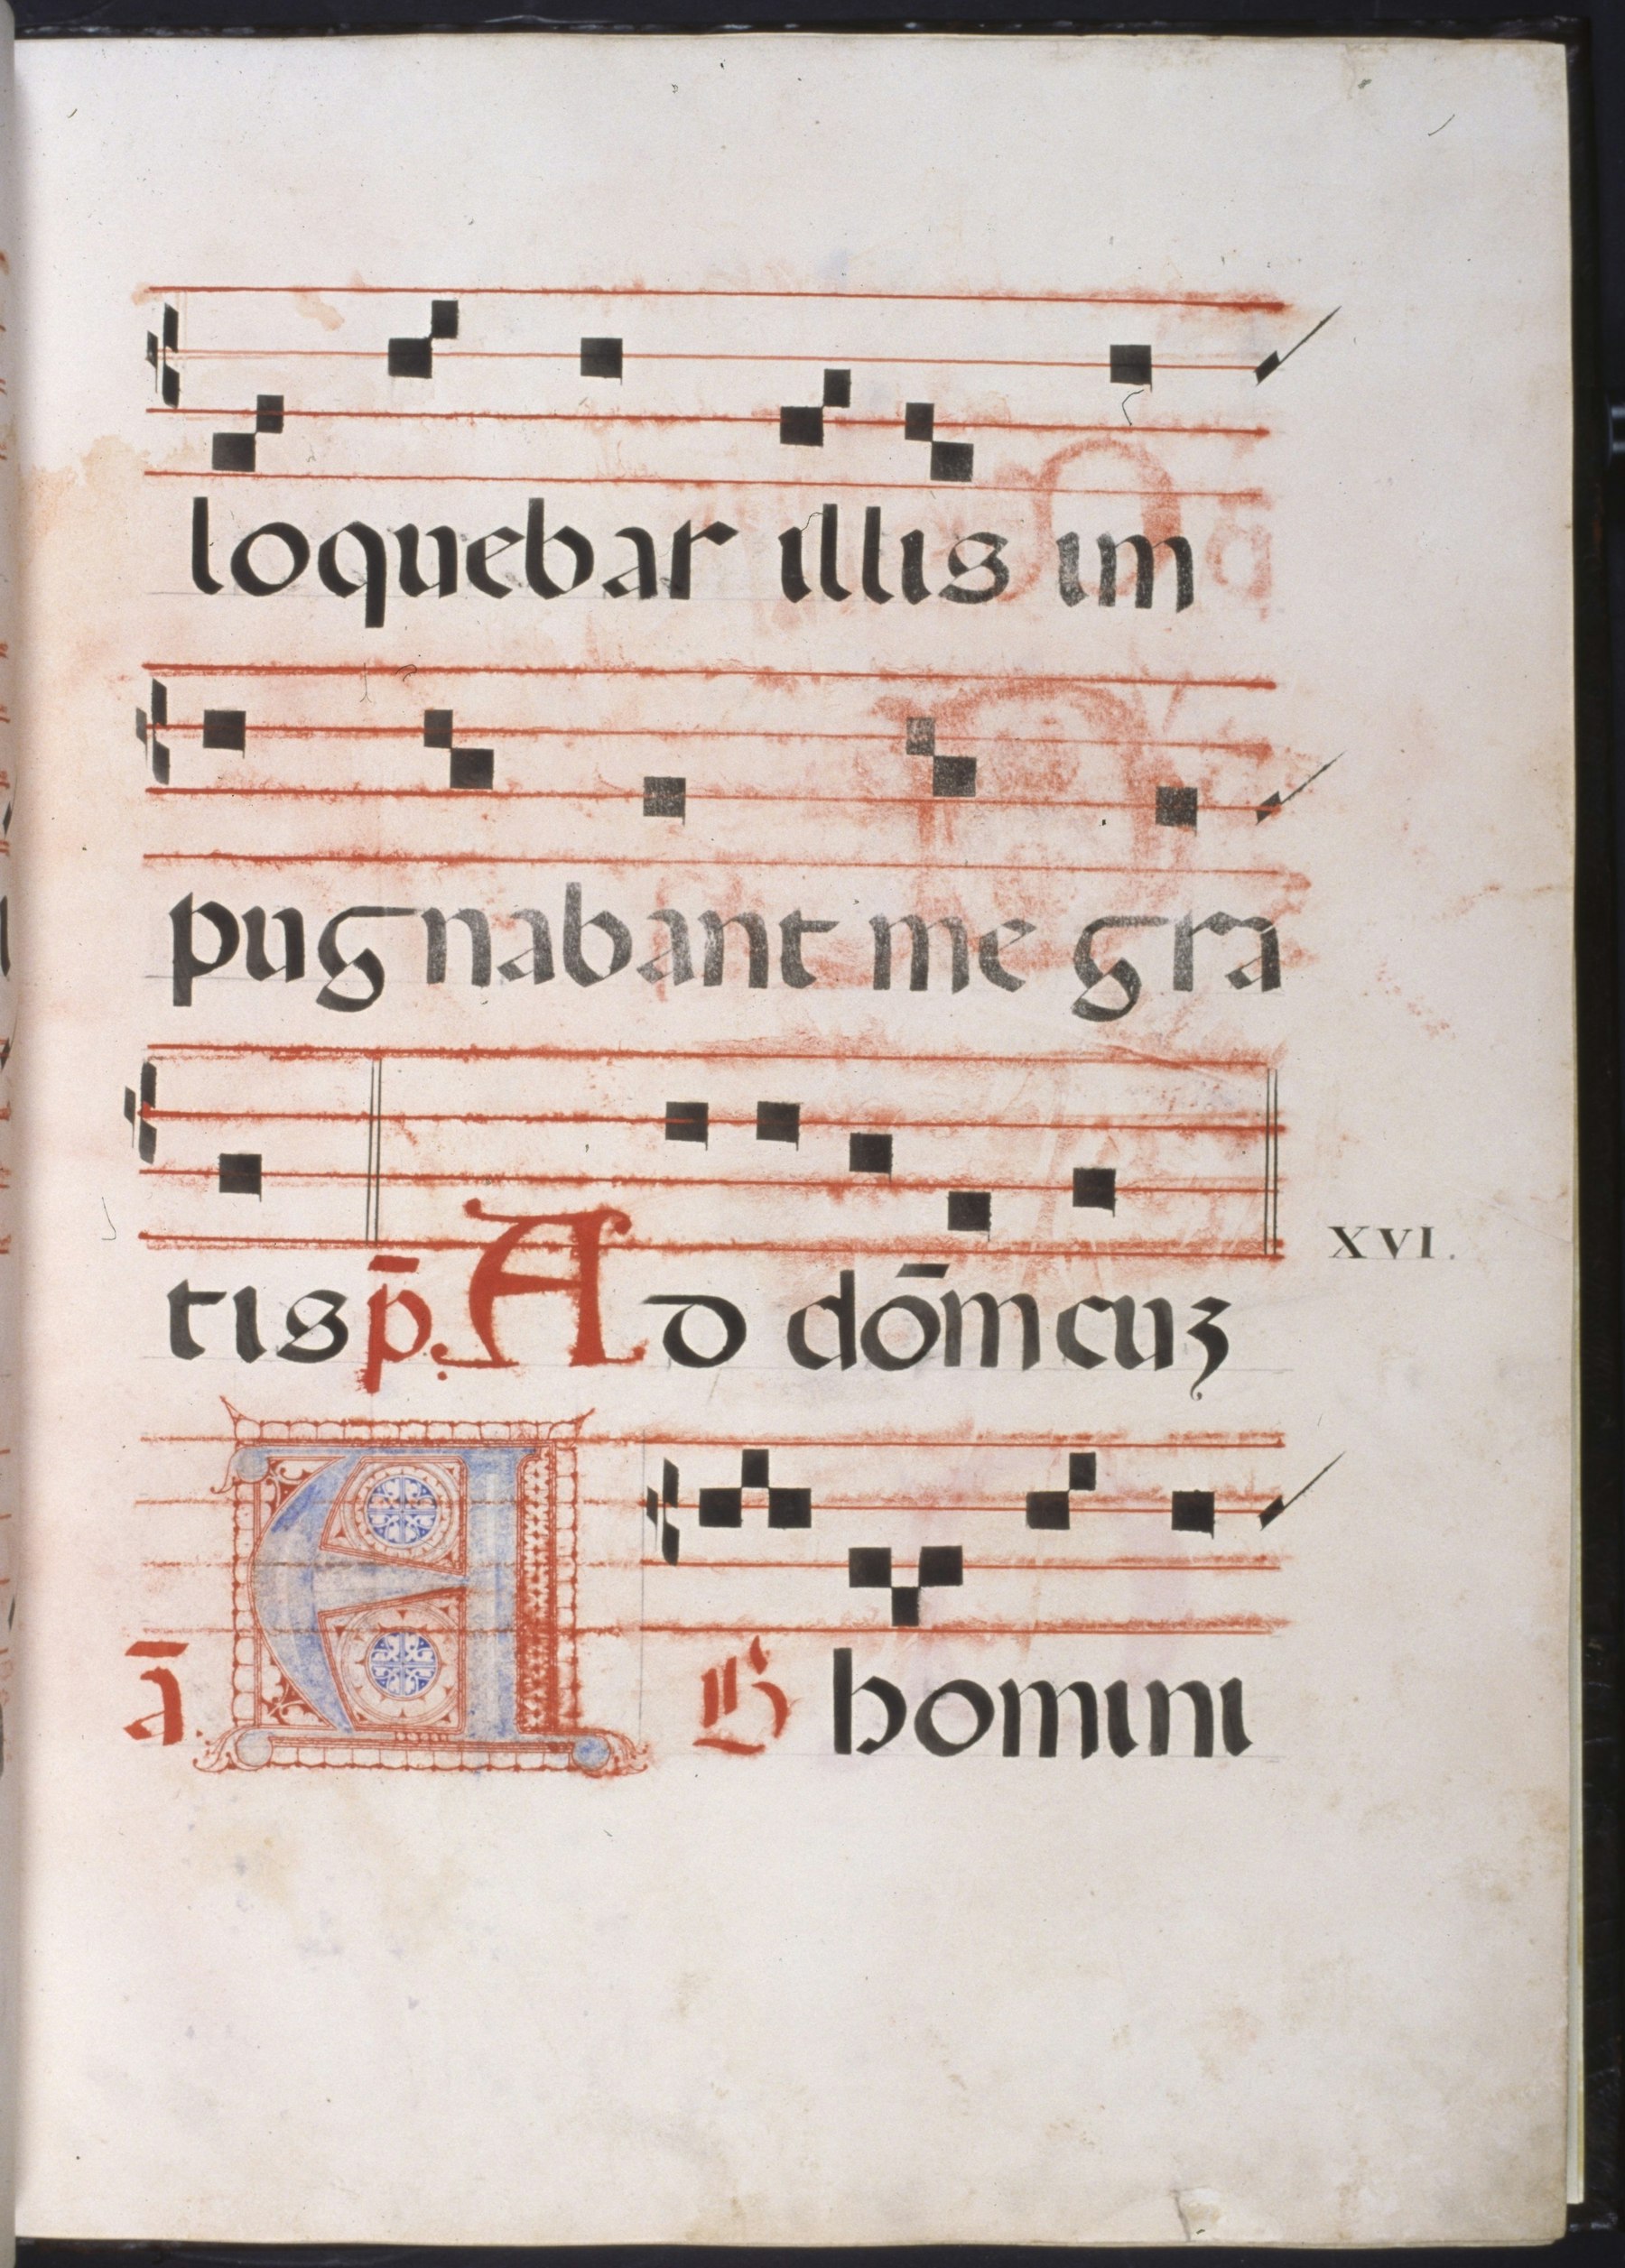 loquebar illis im
pugnabant me gra
tis p̄. Ad dōm cuz
XVI.
ā. AB homini